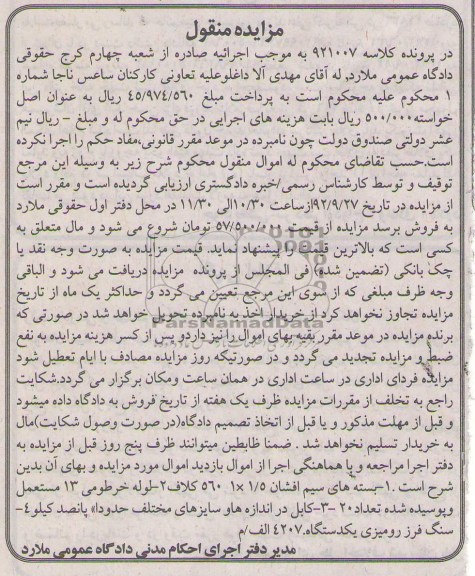 مزایده منقول
در پرونده کلاسه ۹۲۱۰۰۷ به موجب اجرائیه صادره از شعبه چهارم کرج حقوقی
دادگاه عمومی ملارد، له آقای مهدی آلا داغلوعلیه تعاونی کارکنان ساعس ناجا شماره
۱ محکوم علیه محکوم است به پرداخت مبلغ ۴۵/۹۷۴/۵۶۰ ریال به عنوان اصل
خواسته۵۰۰/۰۰۰ ریال بابت هزینه های اجرایی در حق محکوم له و مبلغ – ریال نیم
عشر دولتی صندوق دولت چون نامبرده در موعد مقرر قانونی،مفاد حکم را اجرا نکرده
است.حسب تقاضای محکوم له اموال منقول محکوم شرح زیر به وسیله این مرجع
توقیف و توسط کارشناس رسمی/خبره دادگستری ارزیابی گردیده است و مقرر است
از مزایده در تاریخ ۹۲/۹/۲۷ازساعت ۱۰/۳۰الی ۱۱/۳۰ در محل دفتر اول حقوقی ملارد
به فروش برسد مزایده از قیمت ۵۷/۵۰۰/۰۰۰ تومان شروع می شود و مال متعلق به
کسی است که بالاترین قیمت را پیشنهاد نماید. قیمت مزایده به صورت وجه نقد یا
چک بانکی (تضمین شده) فی المجلس از پرونده مزایده دریافت می شود و الباقی
وجه ظرف مبلغی که از سوی این مرجع تعیین می گردد و حداکثر یک ماه از تاریخ
مزایده تجاوز نخواهد کرد از خریدار اخذ به نامبرده تحویل خواهد شد در صورتی که
برنده مزایده در موعد مقرر بقیه بهای اموال را نیز داردو پس از کسر هزینه مزایده به نفع
ضبط و مزایده تجدید می گردد و در صورتیکه روز مزایده مصادف با ایام تعطیل شود
مزایده فردای اداری در ساعت اداری در همان ساعت ومکان برگزار می گردد.شکایت
راجع به تخلف از مقررات مزایده ظرف یک هفته از تاریخ فروش به دادگاه داده میشود
و قبل از مهلت مذکور و یا قبل از اتخاذ تصمیم دادگاه(در صورت وصول شکایت)مال
به خریدار تسلیم نخواهد شد . ضمنا ظابطین میتوانند ظرف پنج روز قبل از مزایده به
دفتر اجرا مراجعه و با هماهنگی اجرا از اموال بازدید اموال مورد مزایده و بهای آن بدین
شرح است .۱-بسته های سیم افشان ۱/۵ ×۱ ۵۶۰ کلاف۲-لوله خرطومی ۱۳ مستعمل
وپوسیده شده تعداد۲۰ -۳-کابل در اندازه هاو سایزهای مختلف حدودا» پانصد کیلو۴-
سنگ فرز رومیزی یکدستگاه.۴۲۰۷ الف/م
مدیر دفتر اجرای احکام مدنی دادگاه عمومی ملارد
ParsNamadData